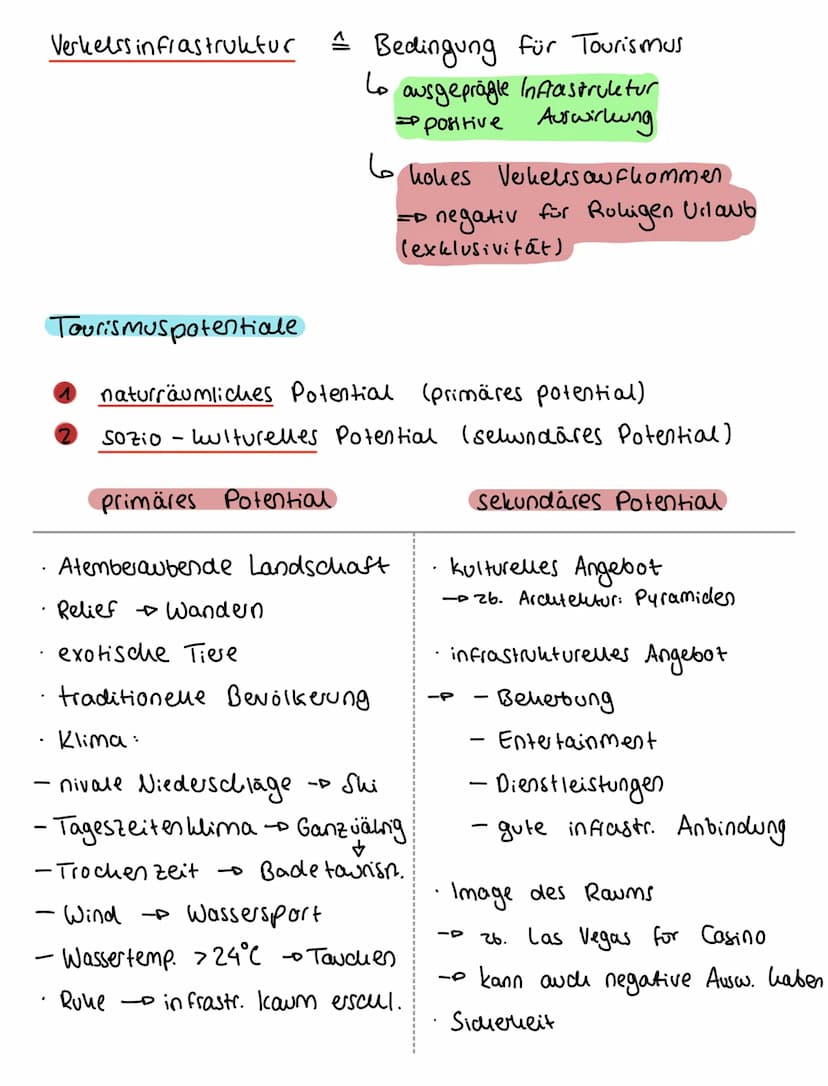 Verkehrsinfrastruktur ≙ Bedingung für Tourismus
↳ ausgeprägte Infrastruktur
⇒ positive Auswirkung
↳ hohes Verkehrsaufkommen
⇒ negativ für Ruhigen Urlaub
(exklusivität)
Tourismuspotentiale
1 naturräumliches Potential (primäres potential)
2 sozio-kulturelles Potential (sekundäres Potential)
primäres Potential
· Atemberaubende Landschaft
· Relief → Wandern
· exotische Tiere
· traditionelle Bevölkerung
· Klima:
- nivale Niederschläge → Ski
- Tageszeitenklima → Ganzjährig
↓
- Trockenzeit → Badetourism.
- Wind → Wassersport
- Wassertemp. > 24°C → Tauchen
· Ruhe → infrastr. kaum erschl.
sekundäres Potential
· kulturelles Angebot
→ zb. Architektur: Pyramiden
· infrastrukturelles Angebot
→ - Beherbung
- Entertainment
- Dienstleistungen
- gute infrastr. Anbindung
· Image des Raums
→ zb. Las Vegas for Casino
→ kann auch negative Ausw. haben
· Sicherheit